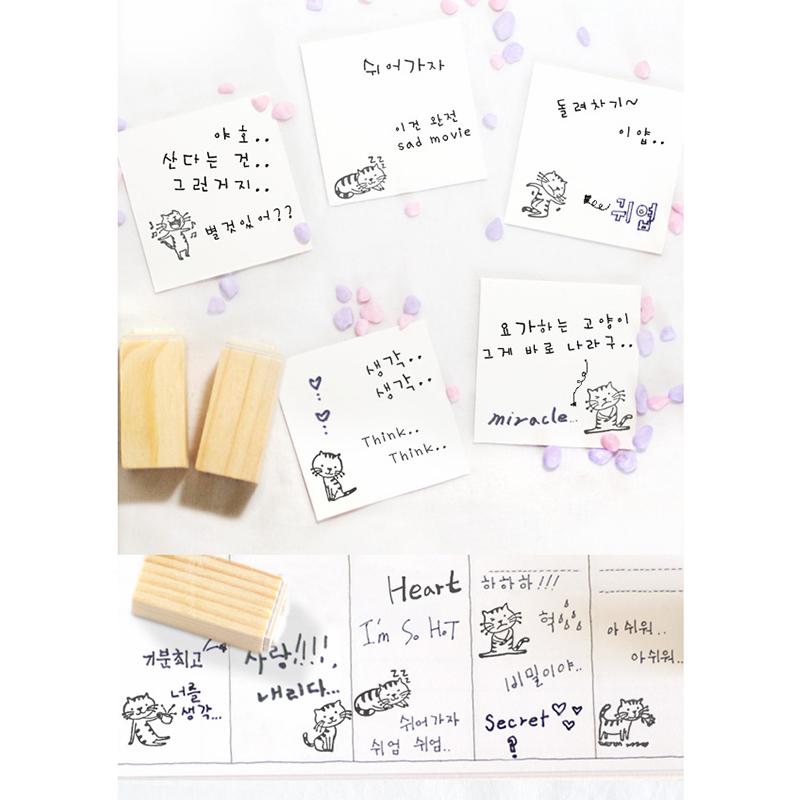 야호..
산다는 건..
그런거지..
별것있어??
쉬어가자
이건 완전
sad movie
zzz
돌려차기~
이얍..
귀엽
생각..
생각..
Think..
Think..
요가하는 고양이
그게 바로 나라구..
miracle...
기분최고
너를
생각...
사랑!!!!
내리다...
Heart
I'm So HoT
zzz
쉬어가자
쉬엄 쉬엄..
하하하!!!
헉
비밀이야..
Secret
?
아쉬워..
아쉬워..